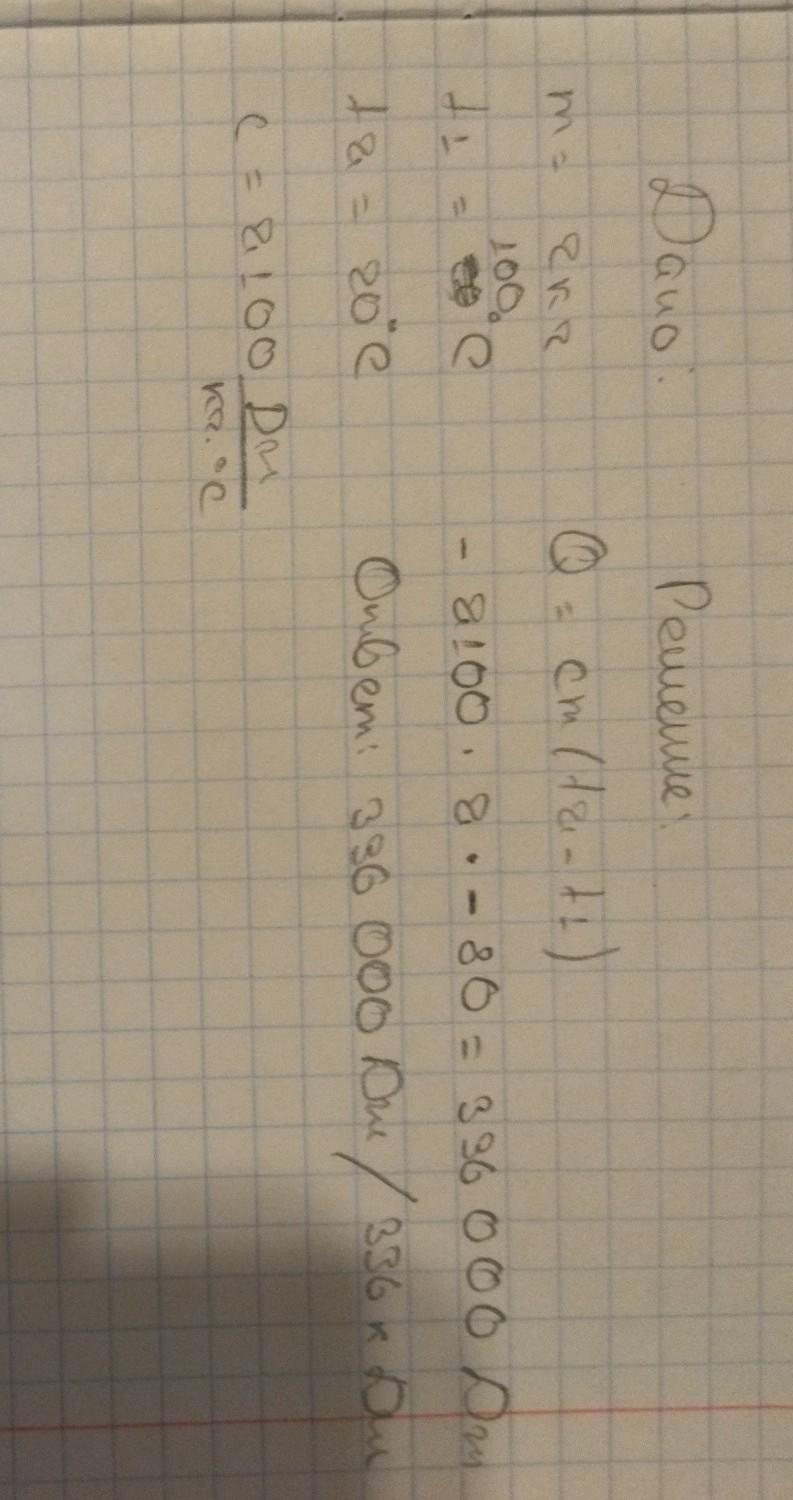 Дано:
m = 2кг
t1 = 100°C
t2 = 20°C
c = 2100 Дж
кг·°C
Решение:
Q = cm(t2 - t1)
- 2100 · 2 · -80 = 336 000 Дж
Ответ: 336 000 Дж / 336 кДж